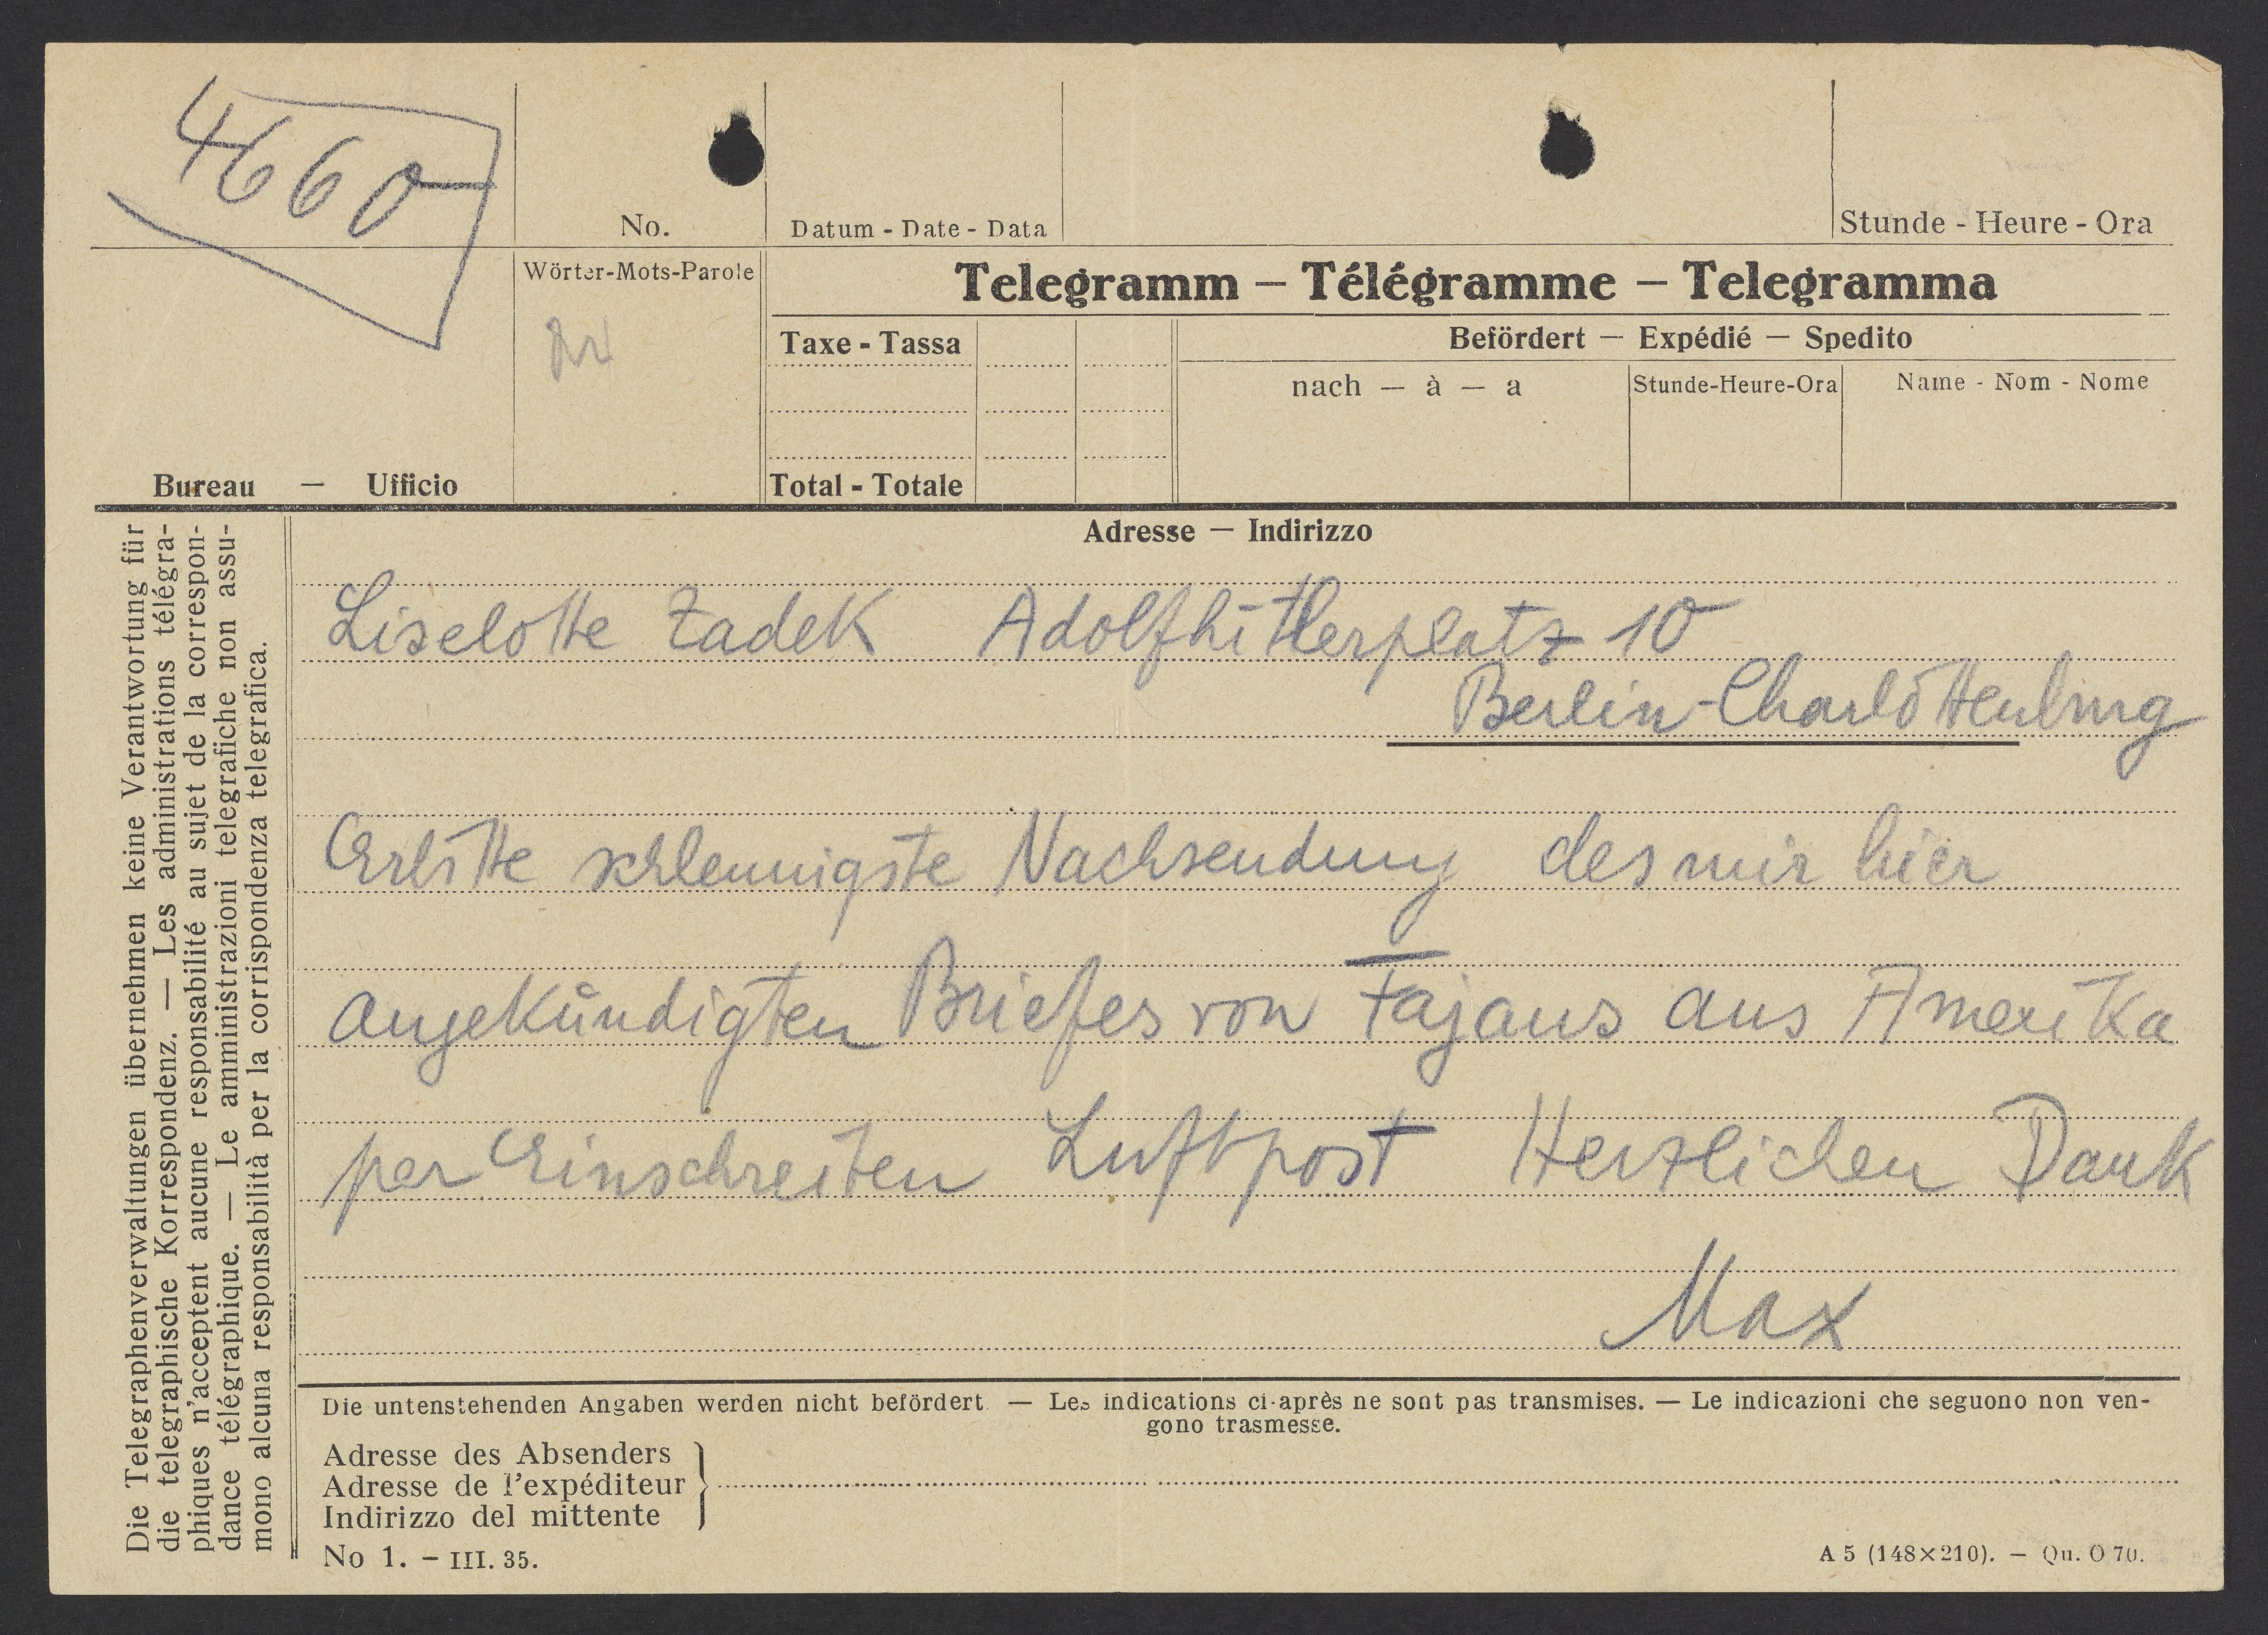 4660
No.
Datum - Date - Data
Stunde - Heure - Ora
Wörter-Mots-Parole
Telegramm — Télégramme — Telegramma
Taxe - Tassa
Befördert — Expédié — Spedito
nach — à — a
Stunde-Heure-Ora
Name - Nom - Nome
Bureau — Ufficio
Total - Totale
Adresse — Indirizzo
Liselotte Zadek Adolfhitlerplatz 10
Berlin-Charlottenburg
Erbitte schleunigste Nachsendung des mir hier
angekündigten Briefes von Fajans aus Amerika
per Einschreiben Luftpost Herzlichen Dank
Max
Die untenstehenden Angaben werden nicht befördert. — Les indications ci-après ne sont pas transmises. — Le indicazioni che seguono non ven-
gono trasmesse.
Adresse des Absenders
Adresse de l'expéditeur
Indirizzo del mittente
No 1. – III. 35.
A 5 (148×210). — Qu. O 70.
Die Telegraphenverwaltungen übernehmen keine Verantwortung für
die telegraphische Korrespondenz. — Les administrations télégra-
phiques n'acceptent aucune responsabilité au sujet de la correspon-
dance télégraphique. — Le amministrazioni telegrafiche non assu-
mono alcuna responsabilità per la corrispondenza telegrafica.